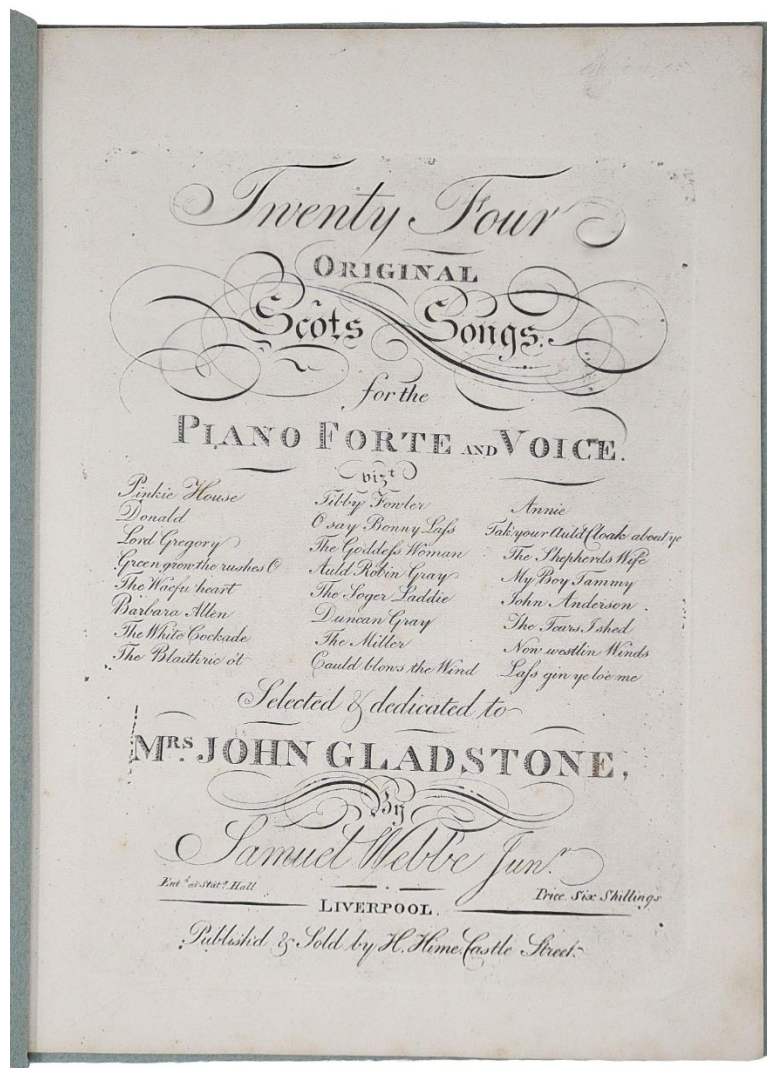 Twenty Four
ORIGINAL
Scots Songs.
for the
PIANO FORTE AND VOICE.
vizt
Pinkie House
Donald
Lord Gregory
Green grow the rushes O
The Waefu' heart
Barbara Allen
The White Cockade
The Blaithrie o't
Tibby Fowler
O say Bonny Laſs
The Goddeſs Woman
Auld Robin Gray
The Soger Laddie
Duncan Gray
The Miller
Cauld blows the Wind
Annie
Tak your Auld Cloak about ye
The Shepherds Wife
My Boy Tammy
John Anderson
The Tears I shed
Now westlin Winds
Laſs gin ye loe me
Selected & dedicated to
MRS. JOHN GLADSTONE,
By
Samuel Webbe Junr.
Entd. at Statrs. Hall
Price Six Shillings
LIVERPOOL.
Publish'd & Sold by H. Hime. Castle Street.